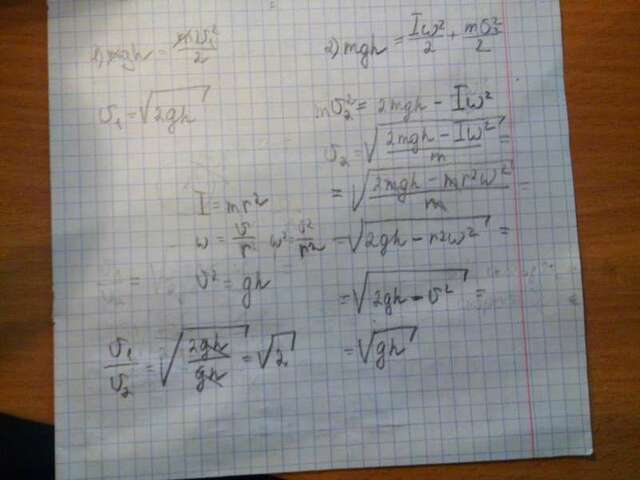 1) mgh = mυ₁²/2
υ₁ = √2gh
2) mgh = Iω²/2 + mυ₂²/2
mυ₂² = 2mgh - Iω²
υ₂ = √((2mgh - Iω²)/m) =
= √((2mgh - mr²ω²)/m) =
I = mr²
ω = υ/r ω² = υ²/r² = √(2gh - r²ω²) =
υ² = gh = √(2gh - υ²) =
υ₁/υ₂ = √(2gh/gh) = √2 = √gh